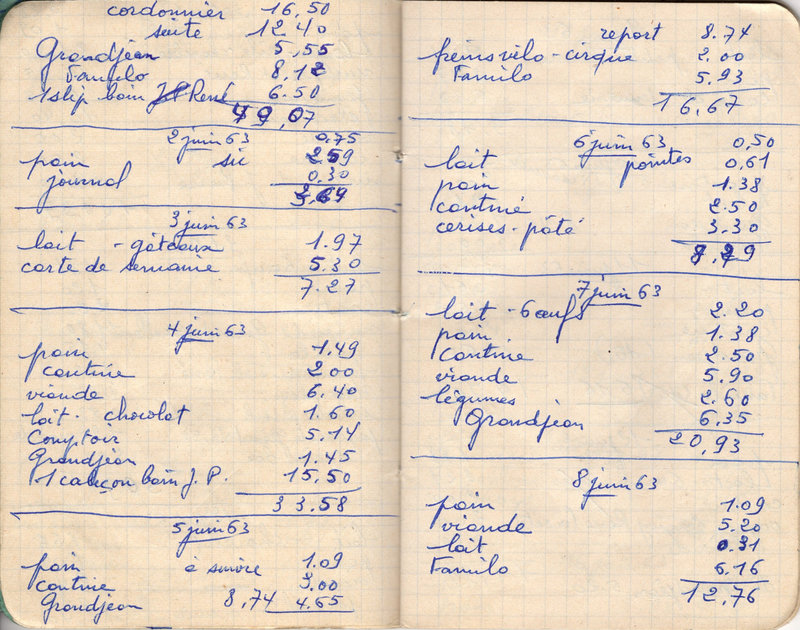 cordonnier 16,50
suite 12.40
Grandjean 5,55
Familo 8,12
1 slip bain René 6.50
49,07
2 juin 63 0,75
pain 2.59
journal 0.30
3,69
3 juin 63
lait - gâteaux 1.97
carte de semaine 5.30
7.27
4 juin 63
pain 1.49
cantine 2.00
viande 6.40
lait - chocolat 1.60
Comptoir 5.14
Grandjean 1.45
1 caleçon bain J.P. 15,50
33.58
5 juin 63
pain à suivre 1.09
cantine 3.00
Grandjean 8,74 4.65
report 8.74
freins vélo - cirque 2.00
Familo 5.93
16,67
6 juin 63 0,50
lait pointes 0,61
pain 1.38
cantine 2.50
cerises - pâté 3.30
8,29
7 juin 63
lait - 6 œufs 2.20
pain 1.38
Cantine 2.50
viande 5.90
légumes 2.60
Grandjean 6,35
20,93
8 juin 63
pain 1.09
viande 5.20
lait 0.31
Familo 6.16
12,76